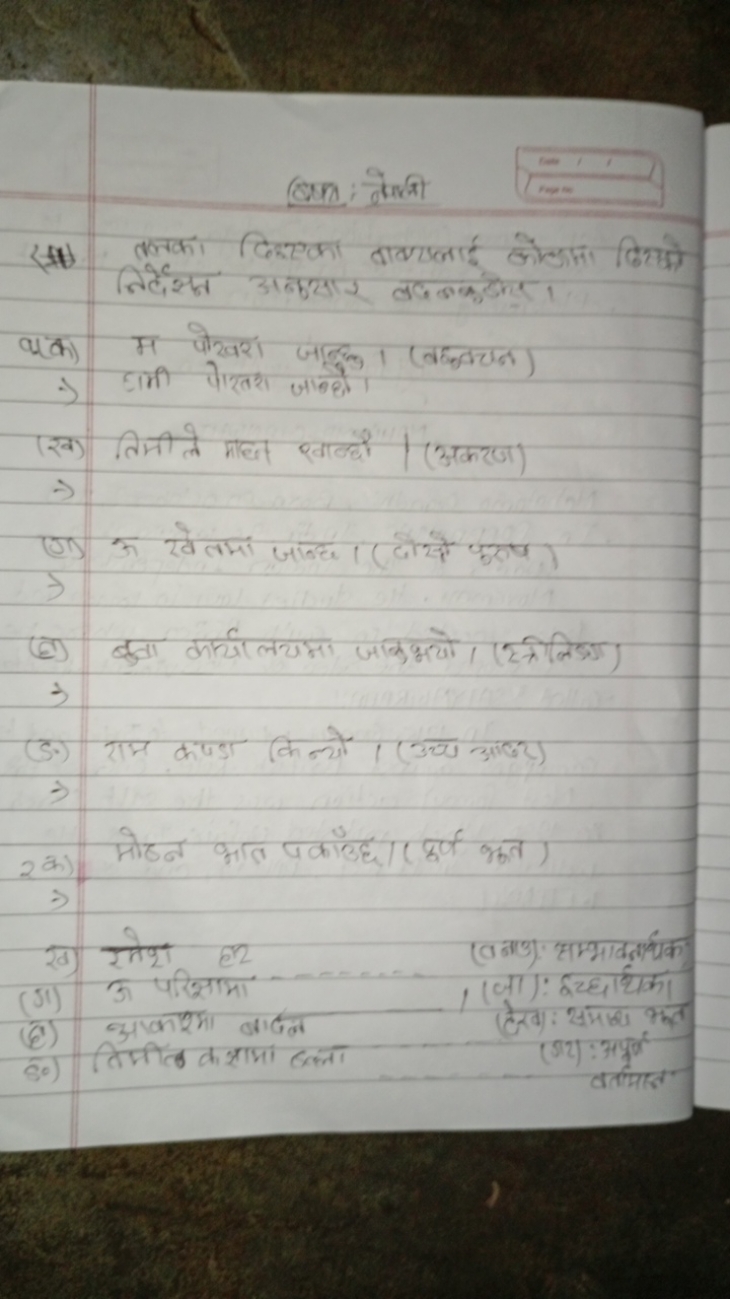 विषय : नेपाली
तलका दिइएका वाक्यलाई कोष्ठमा दिएको
निर्देशन अनुसार
१(क) म पोखरा जान्छु । (बहुवचन)
=> हामी पोखरा जान्छौं ।
(ख) तिमीले खान्छौ । (अकरण)
=>
(ग) ऊ खेलमा जान्छ । (दोस्रो पुरुष)
=>
(घ) बुवा कार्यालयमा जानुभयो । (स्त्रीलिङ्ग)
=>
(ङ) राम कपडा किन्यो । (उच्च आदर)
=>
२ क) मोहन भात पकाउँछ । (पूर्ण भूत)
=>
ख) रमेश घर (बनाउ): सम्भावनार्थक
(ग) ऊ परिक्षामा । (जा): इच्छार्थक
(घ) आकाशमा बादल (देख): समान्य भूत
ङ) तिमीले कक्षामा हल्ला (गर): अपूर्ण
वर्तमान